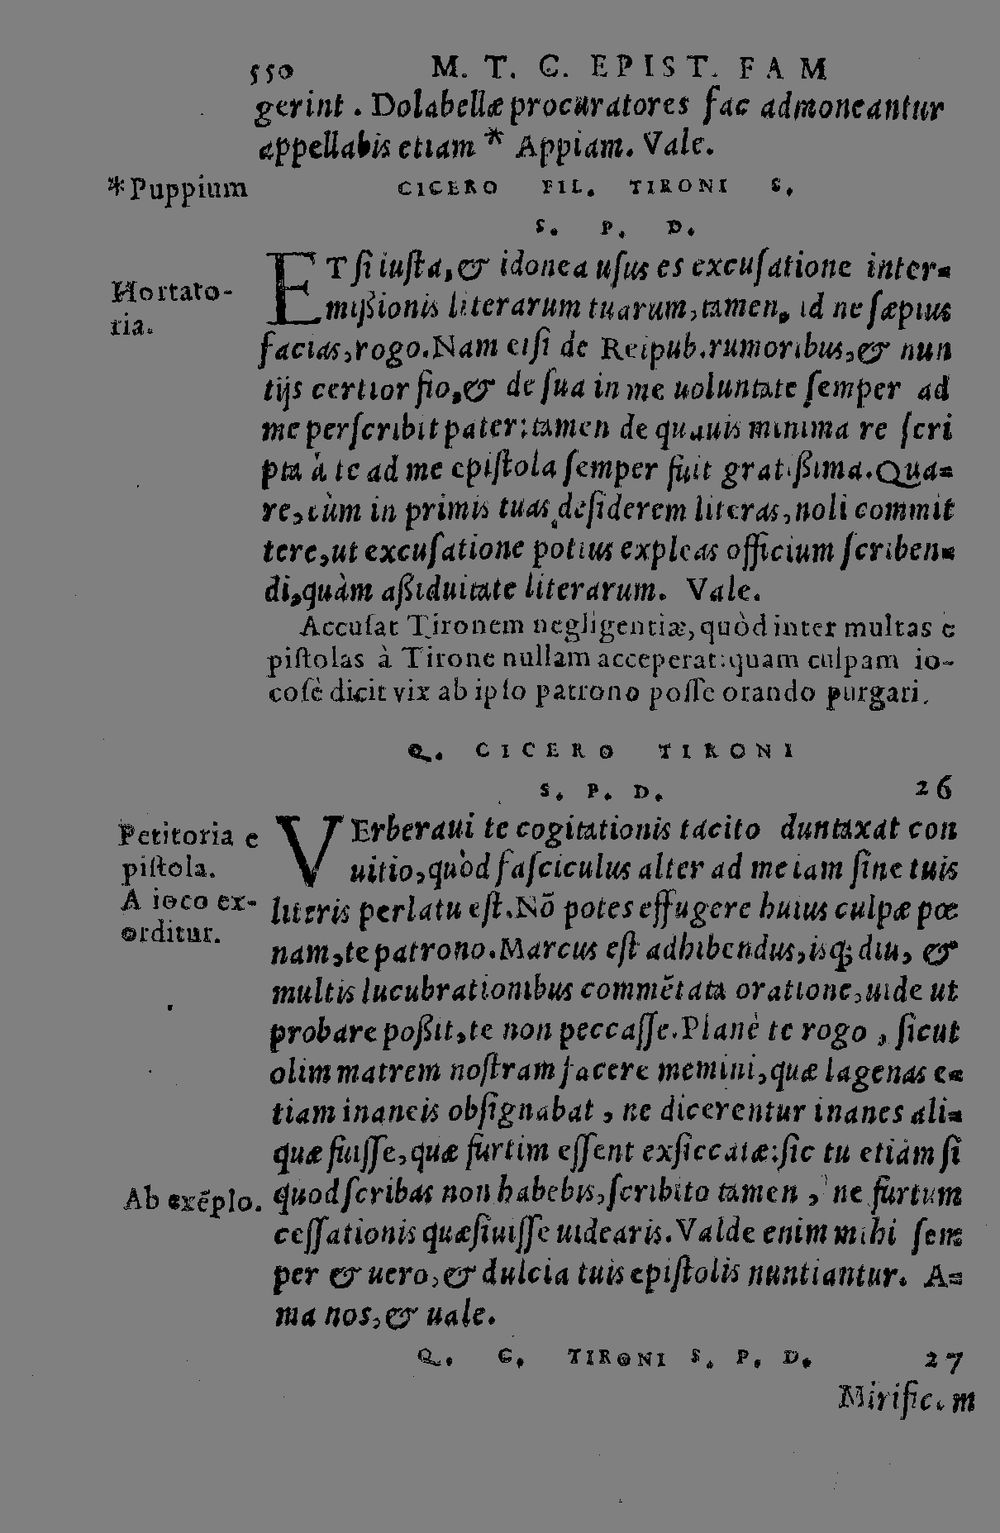 550 M. T. C. EPIST. FAM
gerint . Dolabellæ procuratores fac admoneantur
appellabis etiam * Appiam. Vale.
*Puppium
CICERO FIL. TIRONI S.
S. P. D.
ET ſi iuſta, & idonea uſus es excuſatione inter-
Hortato-
ria.
mißionis literarum tuarum, tamen, id ne ſæpius
facias, rogo. Nam etſi de Reipub. rumoribus, & nun
tijs certior fio, & de ſua in me uoluntate ſemper ad
me perſcribit pater: tamen de quauis minima re ſcri
pta à te ad me epiſtola ſemper fuit gratißima. Qua-
re, cùm in primis tuas deſiderem literas, noli commit
tere, ut excuſatione potius expleas officium ſcriben-
di, quàm aßiduitate literarum. Vale.
Accuſat Tironem negligentiæ, quòd inter multas e
piſtolas à Tirone nullam acceperat: quam culpam io-
coſè dicit vix ab ipſo patrono poſſe orando purgari.
Q. CICERO TIRONI
S. P. D. 26
VErberaui te cogitationis tacito duntaxat con
Petitoria e
piſtola.
A ioco ex-
orditur.
uitio, quòd faſciculus alter ad me iam ſine tuis
literis perlatu eſt. Nō potes effugere huius culpæ pœ
nam, te patrono. Marcus eſt adhibendus, isq; diu, &
multis lucubrationibus commētata oratione, uide ut
probare poßit, te non peccaſſe. Planè te rogo , ſicut
olim matrem noſtram facere memini, quæ lagenas e-
tiam inaneis obſignabat , ne dicerentur inanes ali-
quæ fuiſſe, quæ furtim eſſent exſiccatæ: ſic tu etiam ſi
Ab exēplo.
quod ſcribas non habebis, ſcribito tamen , ne furtum
ceſſationis quæſiuiſſe uidearis. Valde enim mihi ſem
per & uero, & dulcia tuis epiſtolis nuntiantur. A-
ma nos, & uale.
Q. C. TIRONI S. P. D. 27
Mirificam